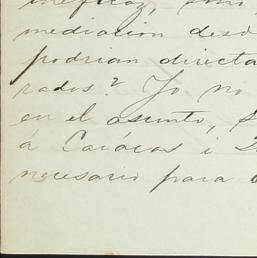 ineficaz,
mediacion desd
podrian directa
rados? Yo no
en el asunto,
á Carácas i
necesario para